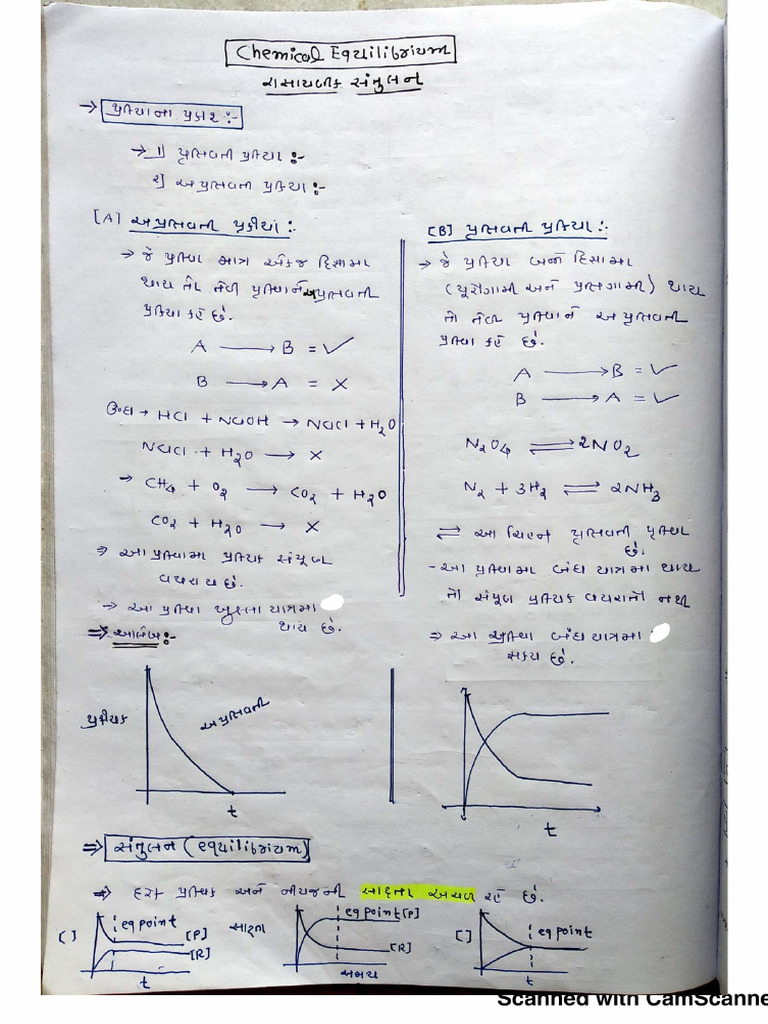 Chemical Equilibrium
રાસાયણીક સંતુલન
→ પ્રક્રિયાના પ્રકાર :-
→ 1) પ્રતિવર્તી પ્રક્રિયા :-
2) અપ્રતિવર્તી પ્રક્રિયા :-
[A] અપ્રતિવર્તી પ્રક્રીયા :-
→ જે પ્રક્રિયા માત્ર એકજ દિશામા
થાય તો તેવી પ્રક્રિયાને અપ્રતિવર્તી
પ્રક્રિયા કહે છે.
A → B = ✓
B → A = ×
ઉદા → HCl + NaOH → NaCl + H2O
NaCl + H2O → ×
→ CH4 + O2 → CO2 + H2O
CO2 + H2O → ×
⇒ આ પ્રક્રિયામા પ્રક્રિયક સંપૂર્ણ
વપરાય છે.
→ આ પ્રક્રિયા ખુલ્લા પાત્રમા
થાય છે.
⇒ આલેખ :-
પ્રક્રીયક
અપ્રતિવર્તી
t
[B] પ્રતિવર્તી પ્રક્રિયા :-
→ જે પ્રક્રિયા બન્ને દિશામા
(પૂરોગામી અને પ્રતિગામી) થાય
તો તેવી પ્રક્રિયાને અપ્રતિવર્તી
પ્રક્રિયા કહે છે.
A → B = ✓
B → A = ✓
N2O4 ⇌ 2NO2
N2 + 3H2 ⇌ 2NH3
⇌ આ ચિહ્ન પ્રતિવર્તી પ્રક્રિયા
છે.
- આ પ્રક્રિયામા બંધ પાત્રમા થાય
તો સંપૂર્ણ પ્રક્રિયક વપરાતો નથી
⇒ આ પ્રક્રિયા બંધ પાત્રમા
શક્ય છે.
t
⇒ સંતુલન (equilibrium)
⇒ દરેક પ્રક્રિયક અને નીપજની સાંદ્રતા અચળ રહે છે.
[ ] eq point [P] [R] t
સાંદ્રતા eq point [P] [R] સમય
[ ] eq point t
Scanned with CamScanne